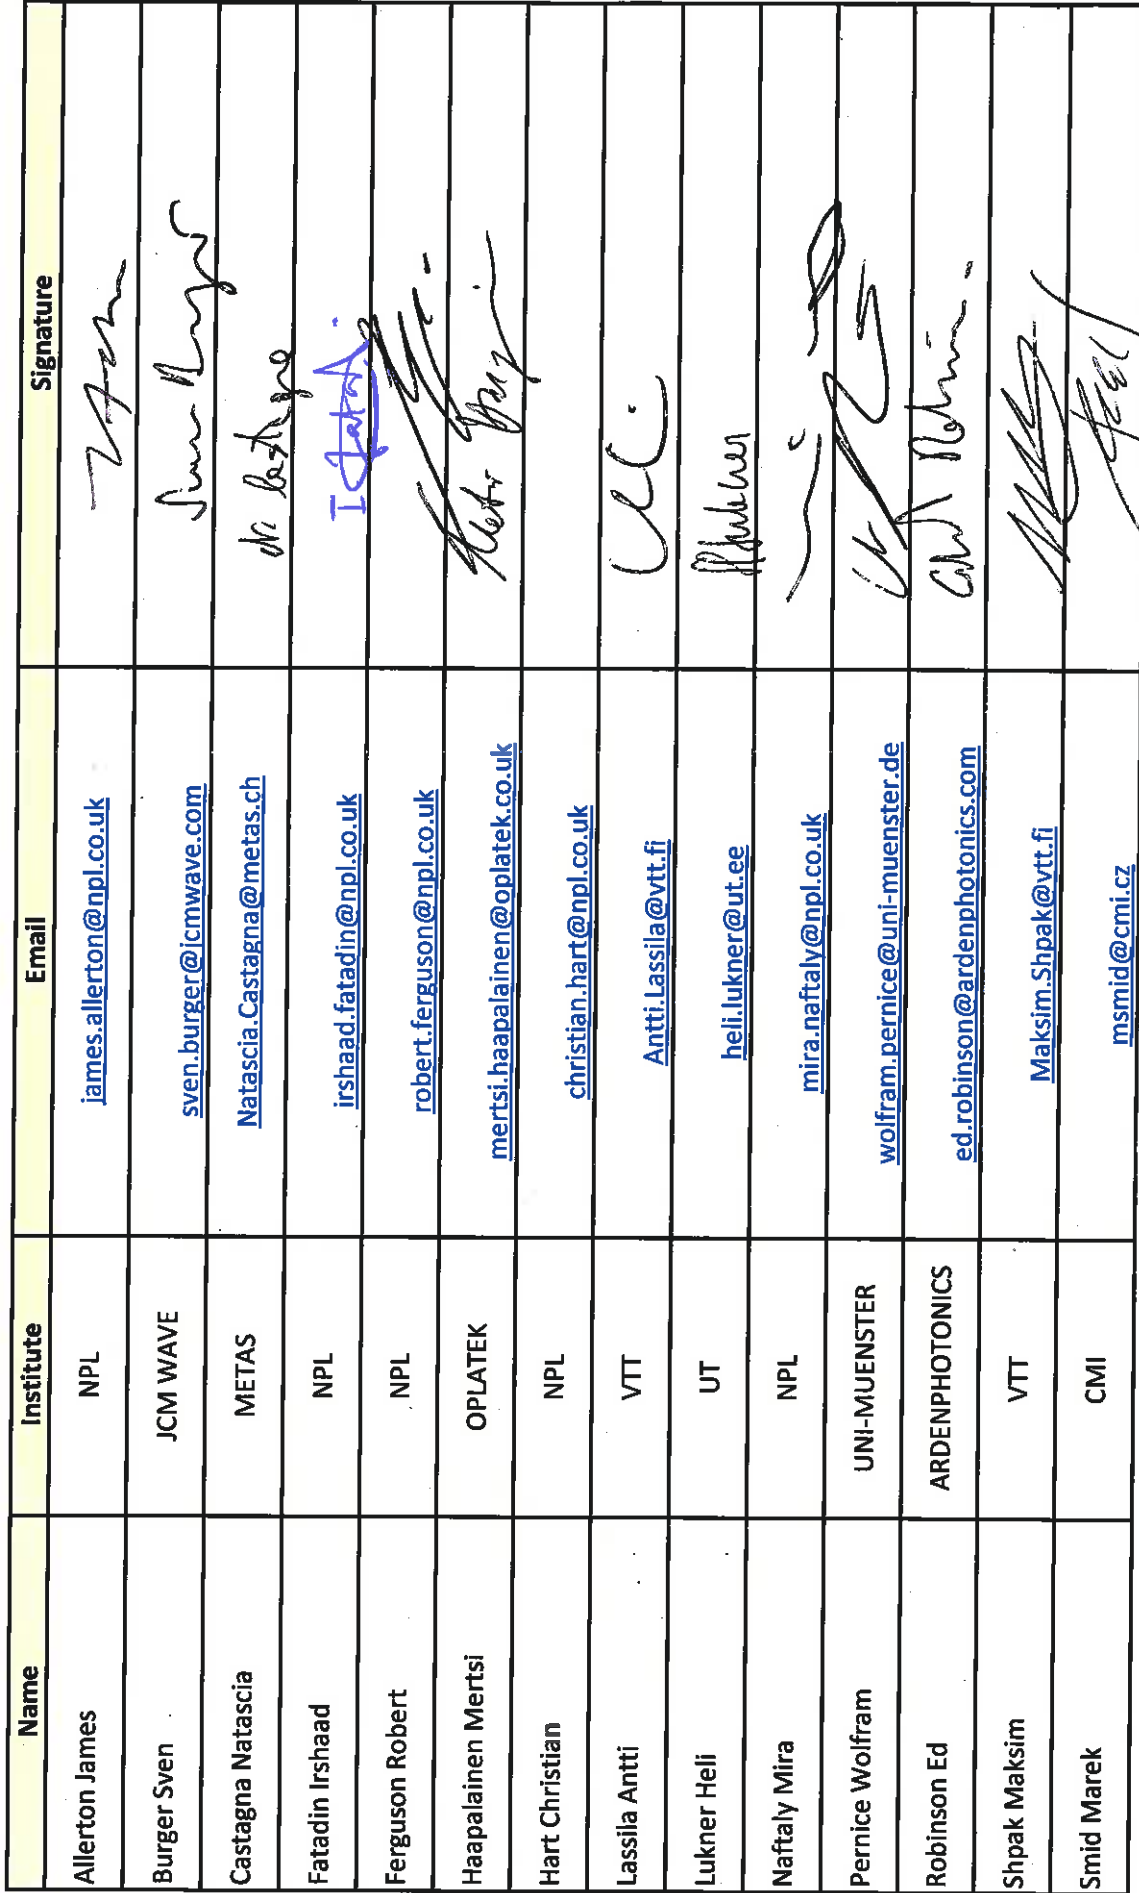 Name Institute Email Signature
Allerton James NPL james.allerton@npl.co.uk
Burger Sven JCM WAVE sven.burger@jcmwave.com
Castagna Natascia METAS Natascia.Castagna@metas.ch
Fatadin Irshaad NPL irshaad.fatadin@npl.co.uk
Ferguson Robert NPL robert.ferguson@npl.co.uk
Haapalainen Mertsi OPLATEK mertsi.haapalainen@oplatek.co.uk
Hart Christian NPL christian.hart@npl.co.uk
Lassila Antti VTT Antti.Lassila@vtt.fi
Lukner Heli UT heli.lukner@ut.ee
Naftaly Mira NPL mira.naftaly@npl.co.uk
Pernice Wolfram UNI-MUENSTER wolfram.pernice@uni-muenster.de
Robinson Ed ARDENPHOTONICS ed.robinson@ardenphotonics.com
Shpak Maksim VTT Maksim.Shpak@vtt.fi
Smid Marek CMI msmid@cmi.cz